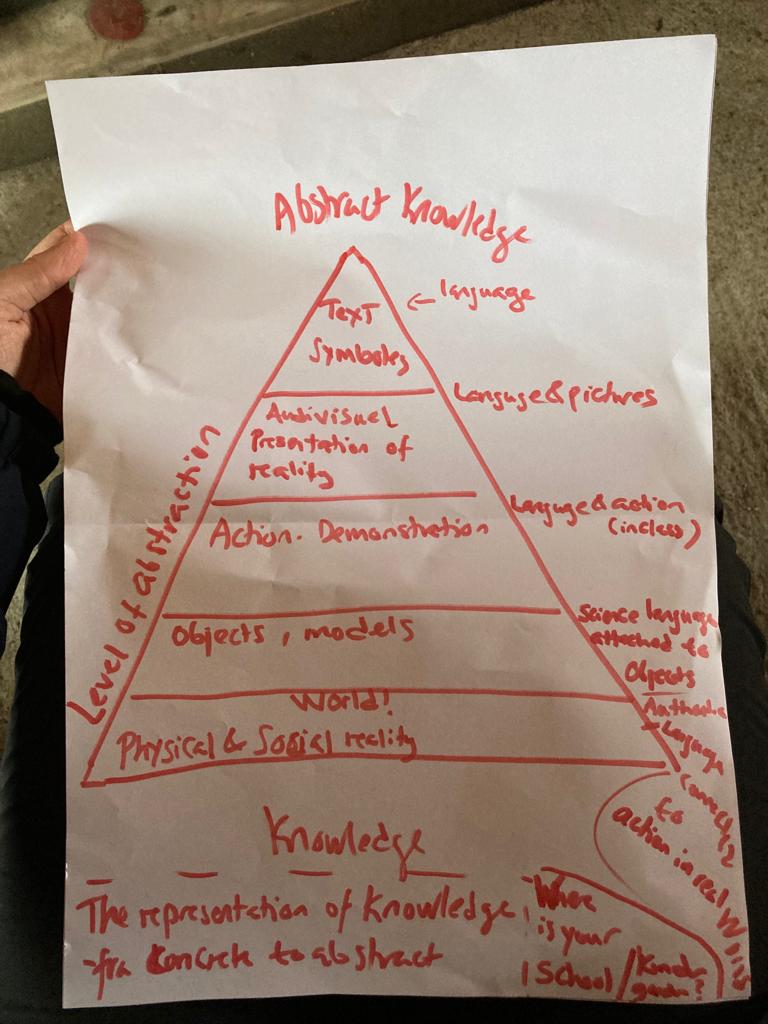 Abstract Knowledge
Text
Symboles
← language
Audivisuel
Presentation of
reality
Language & pictures
Action. Demonstration
Language & action
(inclass)
Objects, models
Science language
attached to
Objects
World!
Physical & Social reality
Language
Level of abstraction
to
action in real
Knowledge
The representation of Knowledge
fra Concrete to abstract
is your
School/